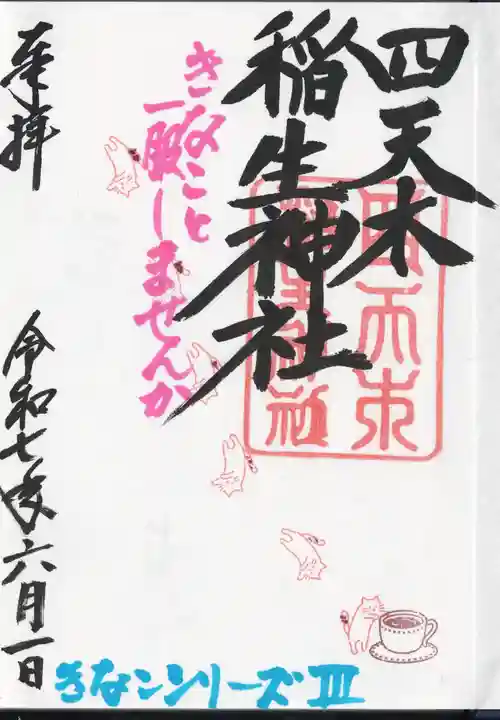 四天木
稲生神社
きなこと
一服しませんか
奉拝
令和七年六月一日
きなこシリーズⅢ
四天木
稲生神社